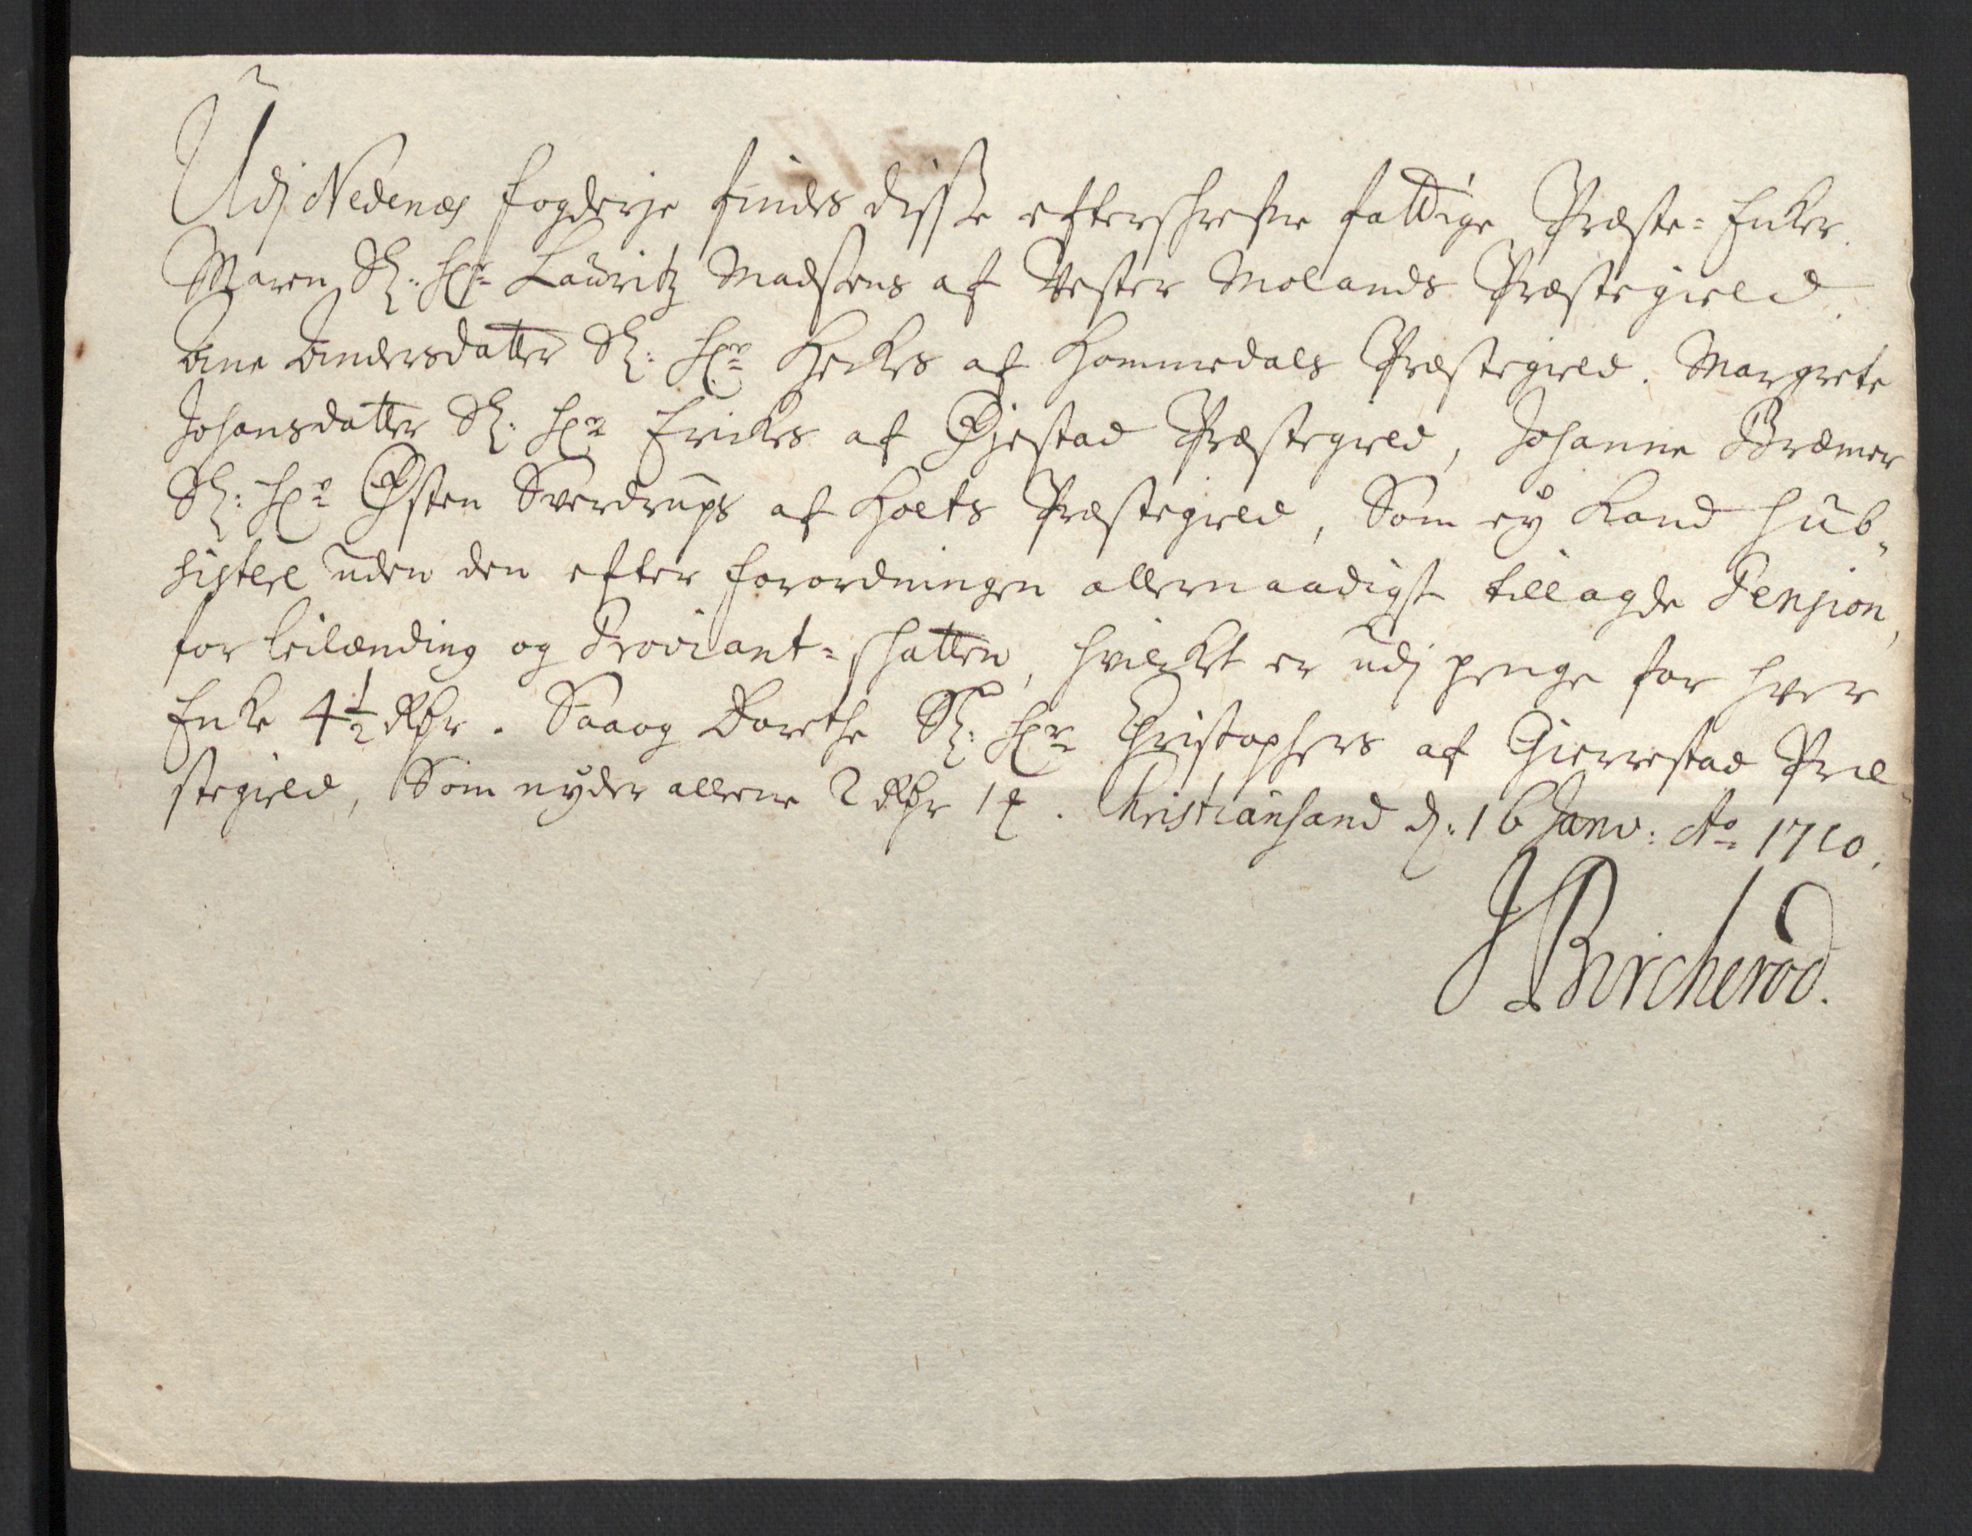 Udj Nedenæs fogderje findes disse efterschrefne fattige Præste-Enker.
Maren Sl: Hr: Lauritz Madsens af Vester Molands Præstegield.
Ane Andersdatter Sl: Hr: Heckes af Hommedals Præstegield. Margrete
Johansdatter Sl: Hr Erickes af Øjestad Præstegield, Johanne Bræmer
Sl: Hr: Østen Sverdrups af Holts Præstegield, Som ey kand sub-
sistere uden den efter forordningen allernaadigst tillagde Pension,
for leilænding og Proviant-skatten, hvilcket er udj penge for hver
Enke 4 1/2 Rdr. Saa og Dorethe Sl: Hr: Christophers af Gierrestad Præ-
stegield, Som nyder allene 2 Rdr 1 ₰. Christiansand d: 16 Janv: Ao 1710.
J Bircherod.